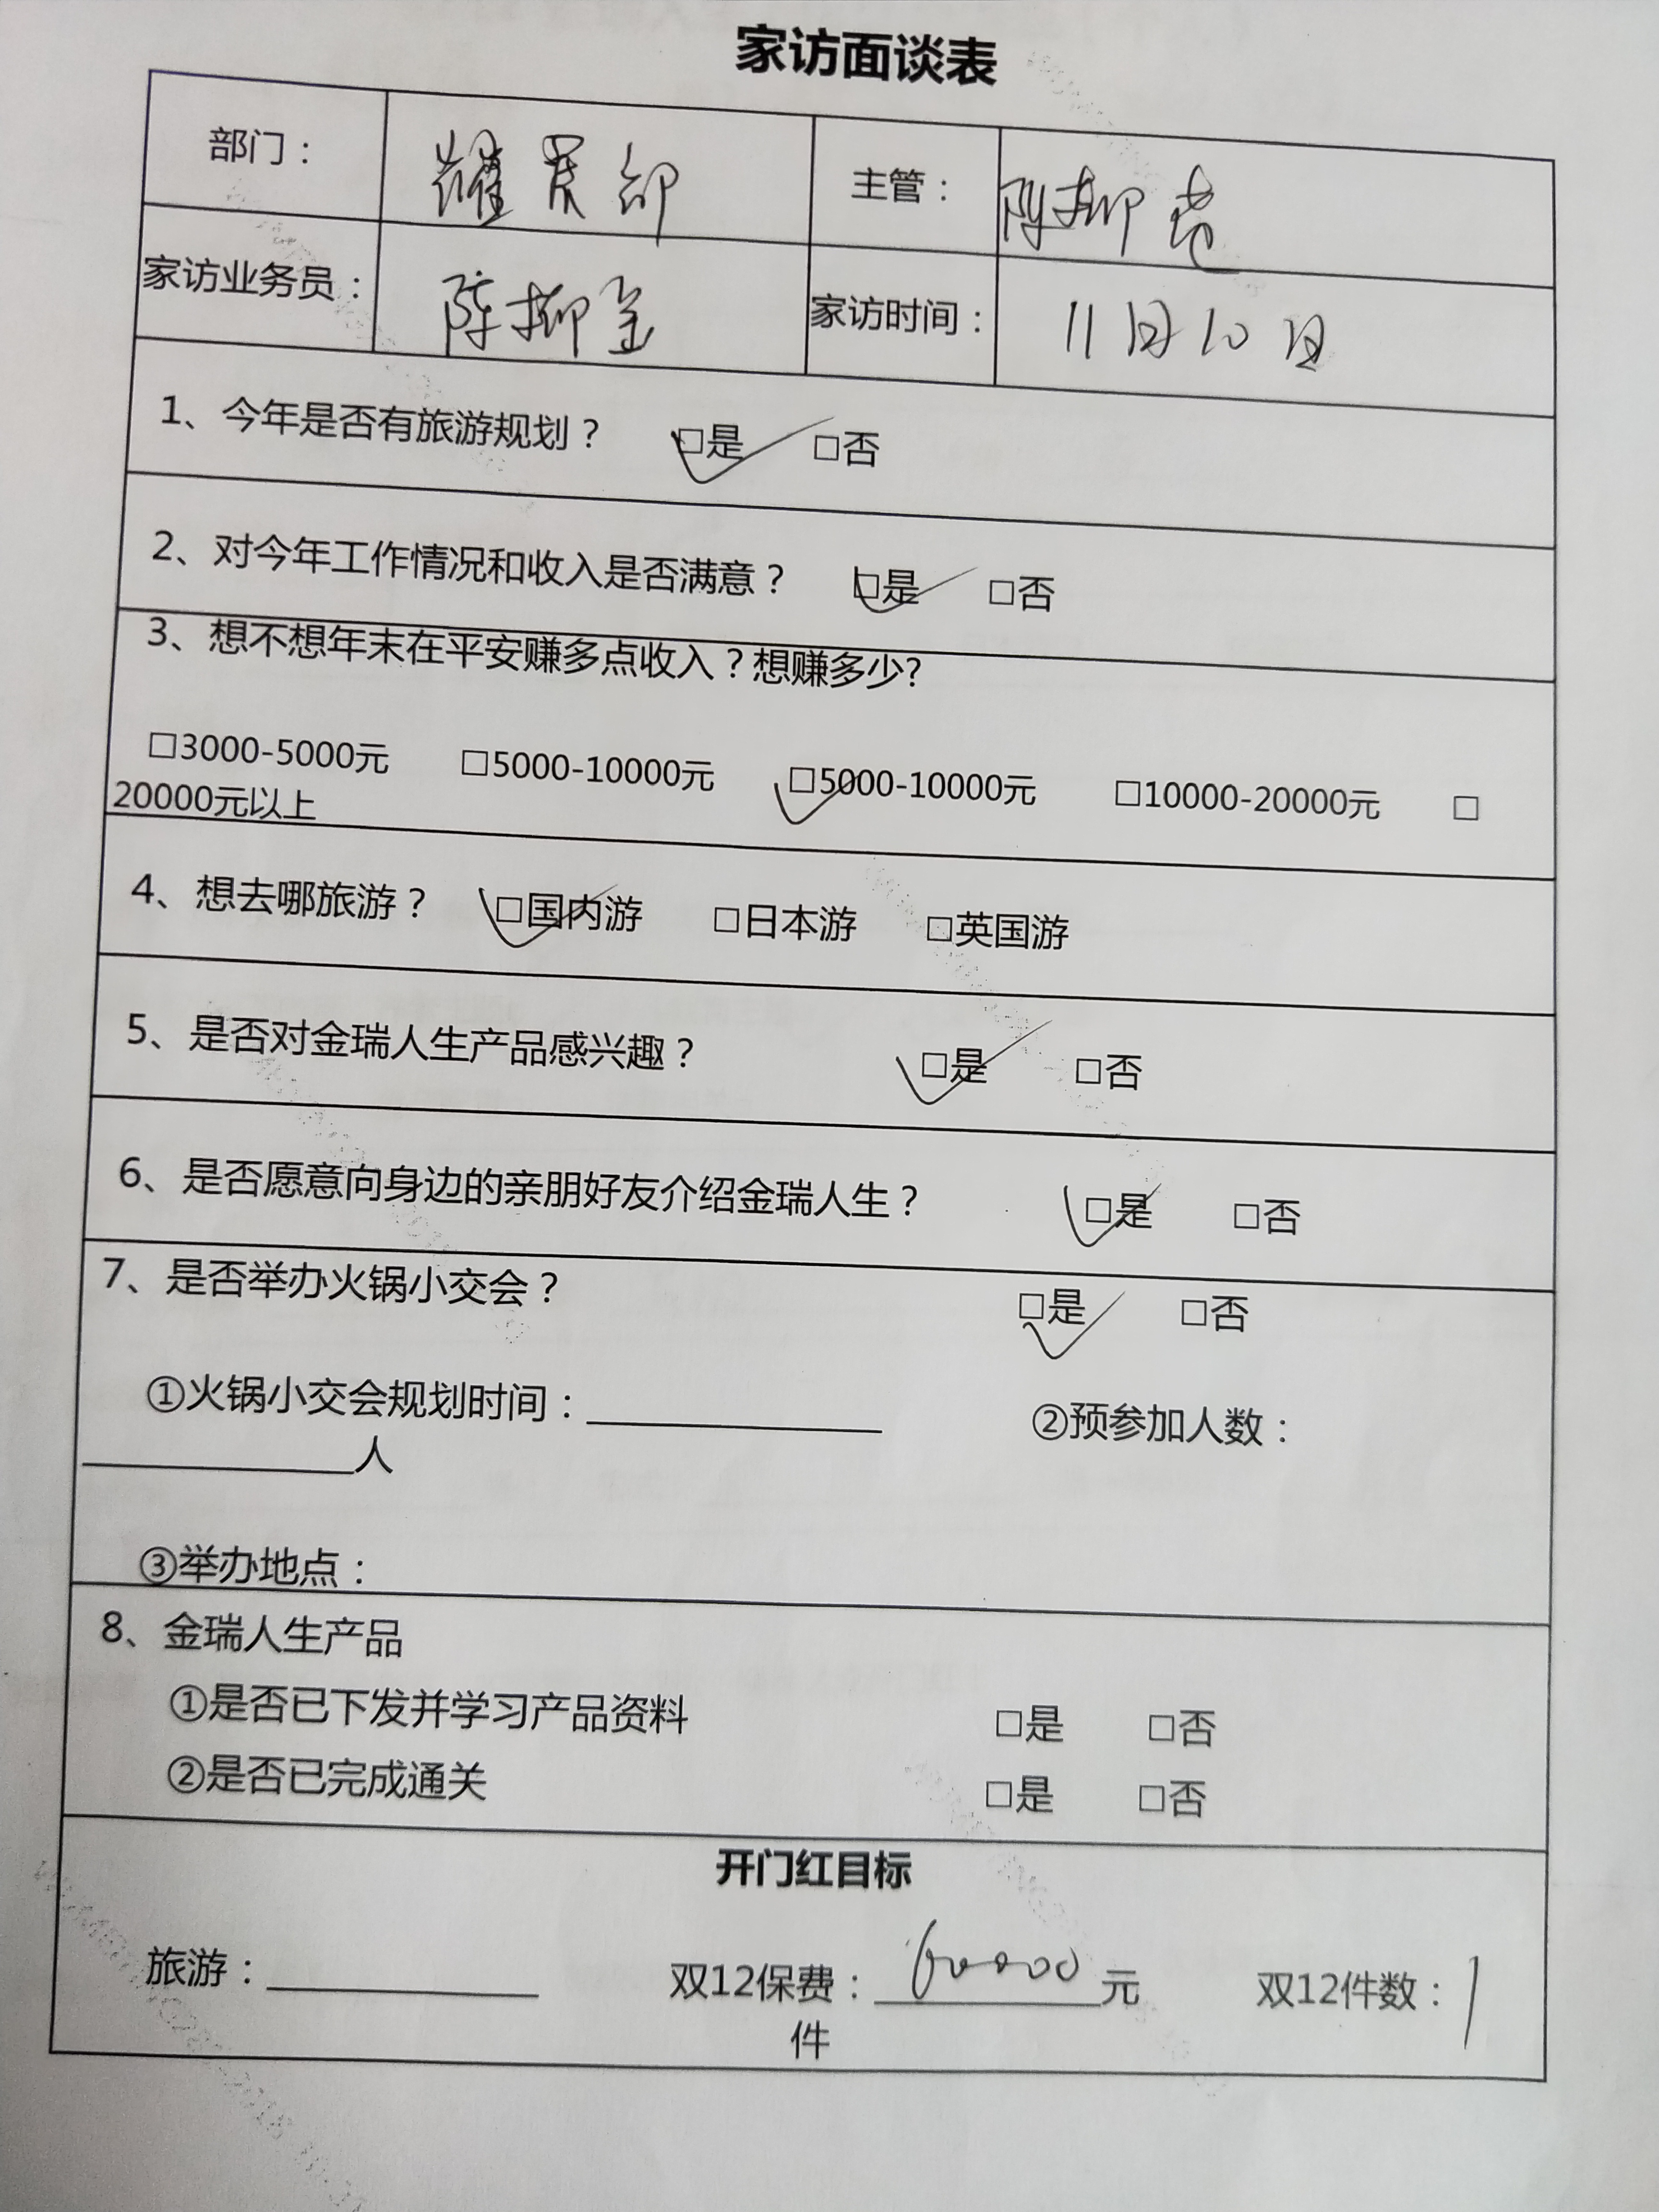 家访面谈表
部门： 耀 部 主管： 陈柳
家访业务员： 陈柳金 家访时间： 11月10日
1、今年是否有旅游规划？ □是 □否
2、对今年工作情况和收入是否满意？ □是 □否
3、想不想年末在平安赚多点收入？想赚多少?
□3000-5000元 □5000-10000元 □5000-10000元 □10000-20000元 □
20000元以上
4、想去哪旅游？ □国内游 □日本游 □英国游
5、是否对金瑞人生产品感兴趣？ □是 □否
6、是否愿意向身边的亲朋好友介绍金瑞人生？ □是 □否
7、是否举办火锅小交会？ □是 □否
①火锅小交会规划时间：__________ ②预参加人数：
__________人
③举办地点：
8、金瑞人生产品
①是否已下发并学习产品资料 □是 □否
②是否已完成通关 □是 □否
开门红目标
旅游：__________ 双12保费：60000元 双12件数：1
件